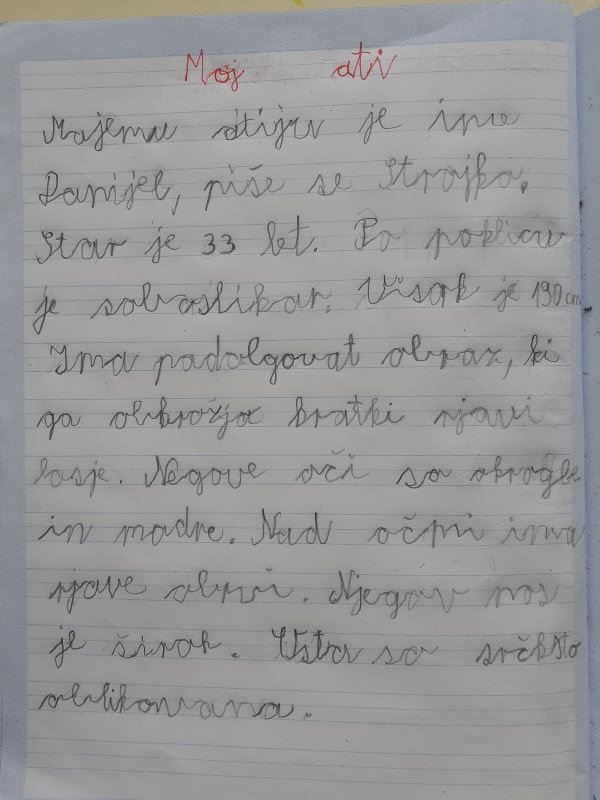 Moj ati
Mojemu atiju je ime
Danijel, piše se Strojko.
Star je 33 let. Po poklicu
je soboslikar. Visok je 190 cm
Ima podolgovat obraz, ki
ga obkrožjo kratki rjavi
lasje. Negove oči so okrogle
in modre. Nad očmi ima
rjave obrvi. Njegov nos
je širok. Usta so srčksto
oblikovana.